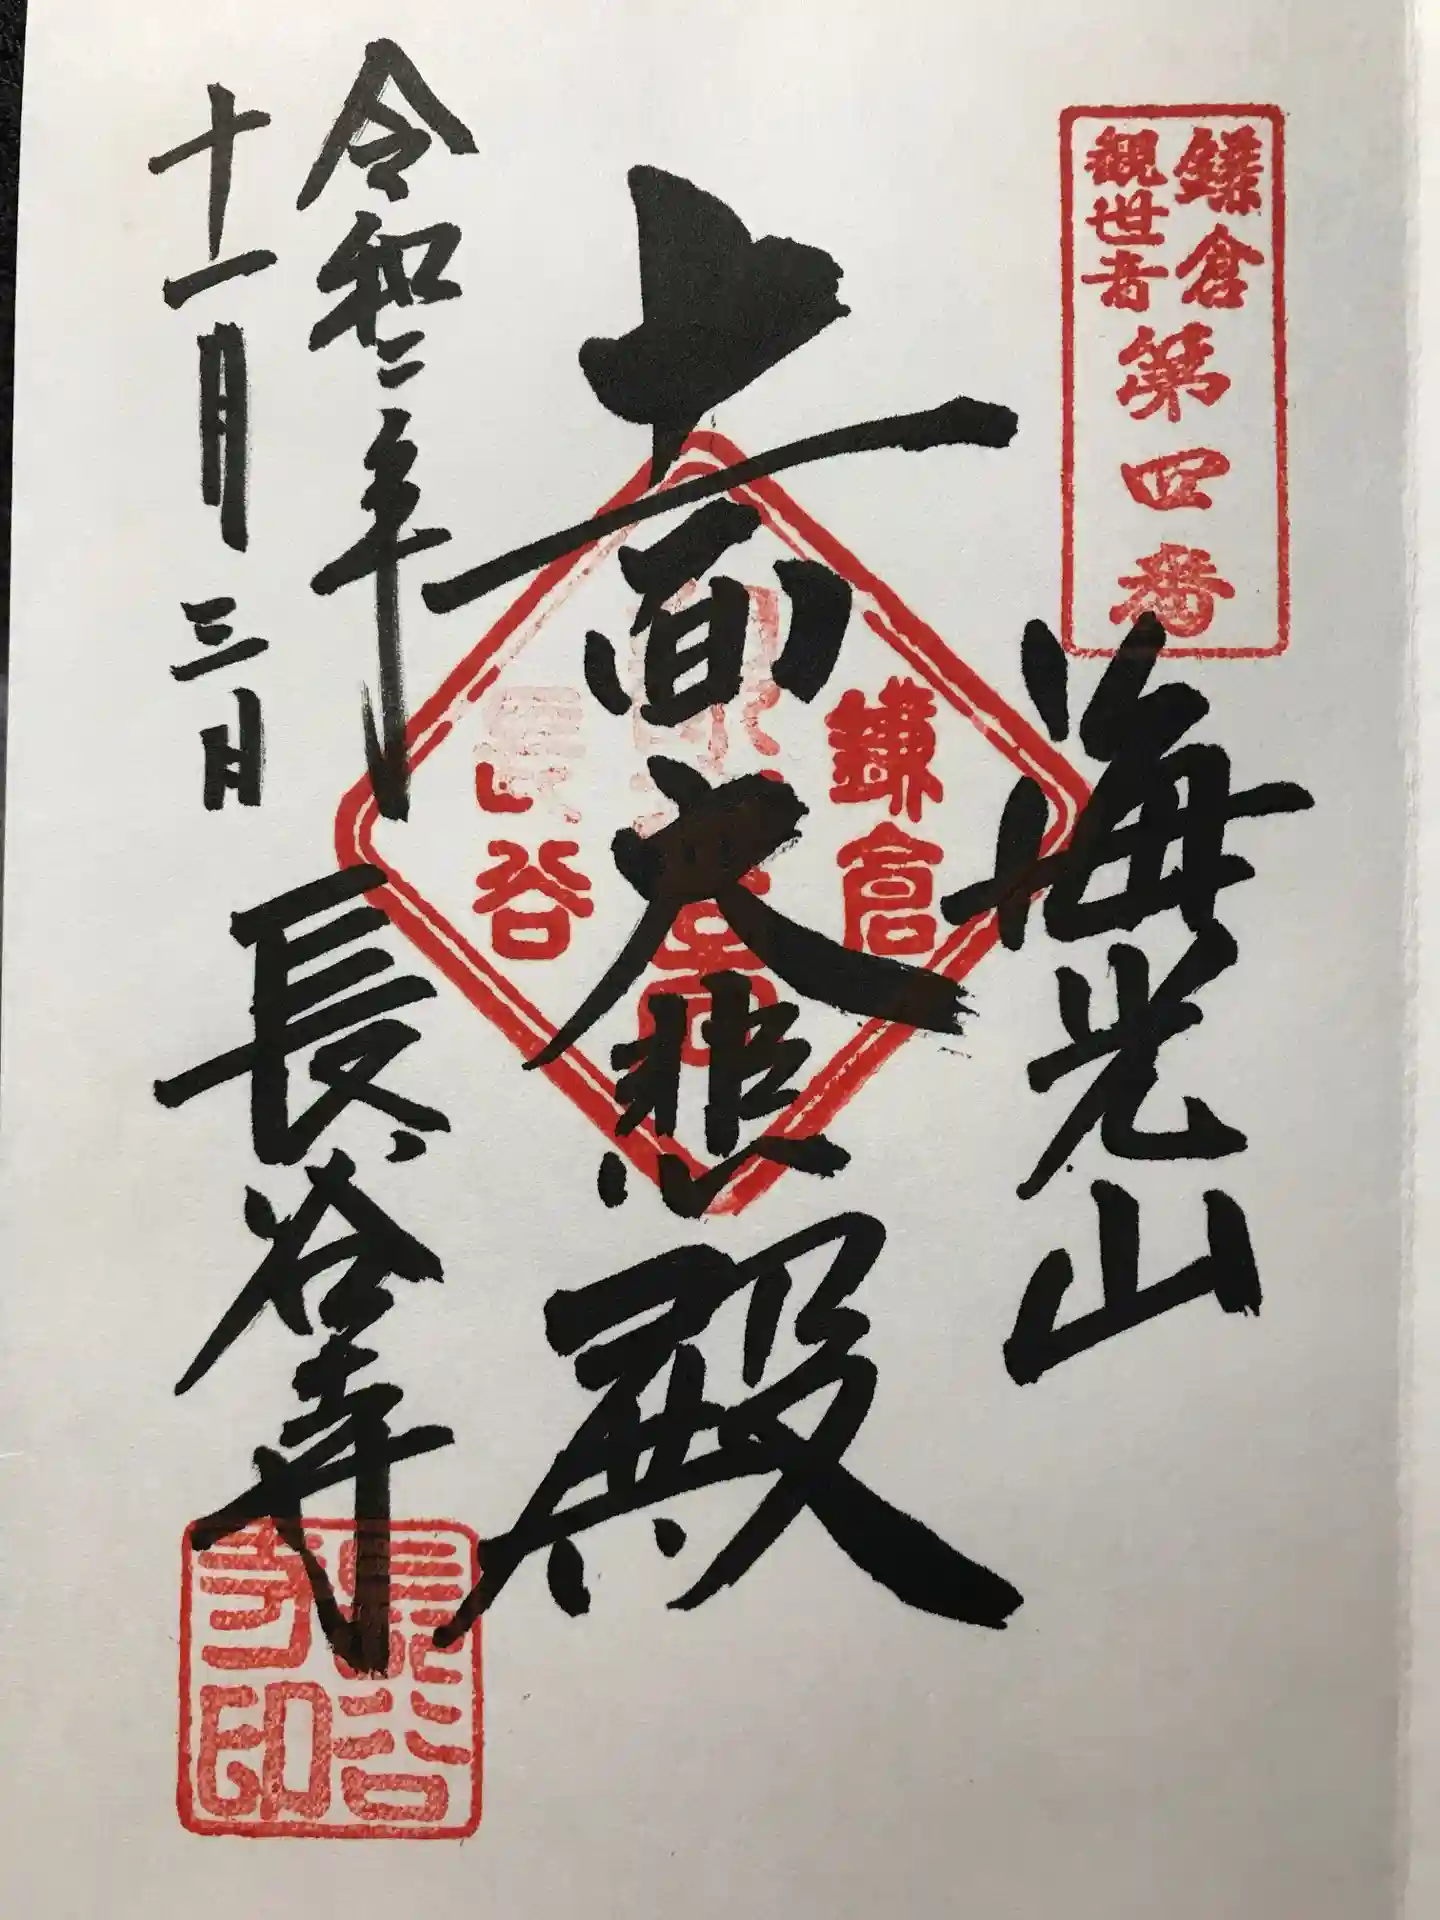 鎌倉
観世音
第四番
海光山
十一面大悲殿
鎌倉
長谷
令和二年
十一月三日
長谷寺
長谷
寺印